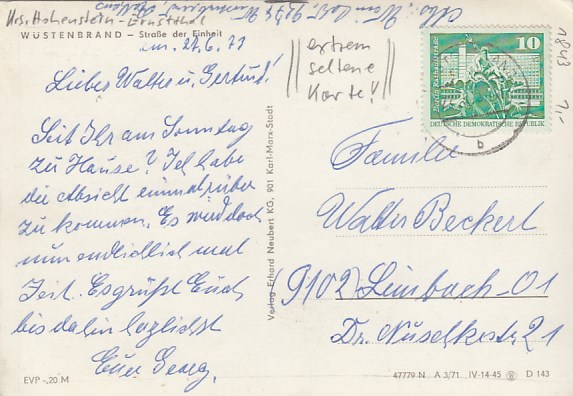 Krs. Hohenstein-Ernstthal
WÜSTENBRAND – Straße der Einheit
Liebe Walter u. Gertrud!
Seit Ihr am Sonntag
zu Hause? Ich habe
die Absicht einmal rüber
zu kommen. Es wird doch
nun endlich mal
Zeit. Es grüßt Euch
bis dahin herzlichst
Euer Georg,
EVP -,20 M
Verlag Erhard Neubert KG, 901 Karl-Marx-Stadt
extrem
seltene
Karte!
10
DEUTSCHE DEMOKRATISCHE REPUBLIK
b
1843
7,-
Familie
Walter Beckert
(9102) Limbach-O1
Dr. Nuschkestr 21
47779 N A 3/71 IV-14-45 D 143